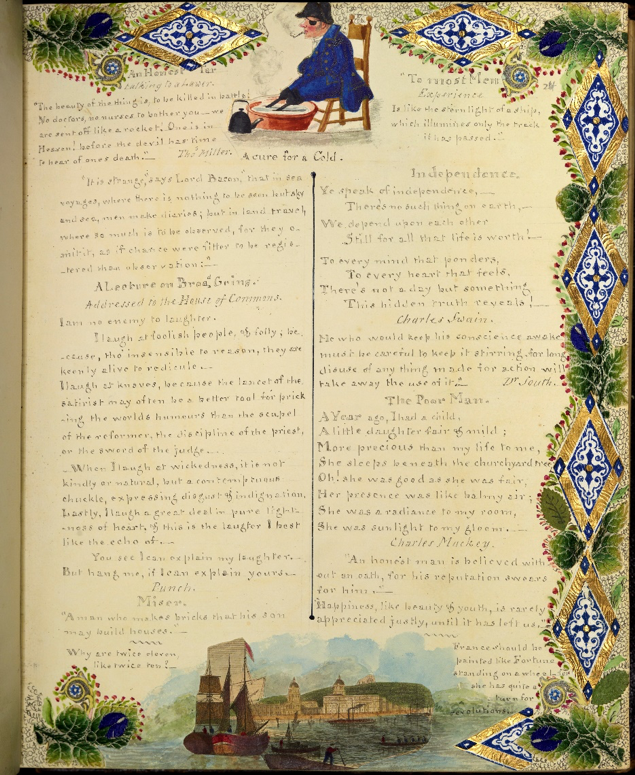 An Honest
talking to a lawyer.
"The beauty of the thing is, to be killed in battle!
No doctors, no nurses to bother you — we
are sent off like a rocket! One is in
Heaven! before the devil has time
to hear of one's death."
Thos Miller.
A cure for a Cold.
"It is strange," says Lord Bacon, "that in sea
voyages, where there is nothing to be seen but sky
and sea, men make diaries; but in land travel,
where so much is to be observed, for the y o-
mit it, as if chance were fitter to be regis-
-tered than observation."
A Lecture on Broad Grins.
Addressed to the House of Commons.
I am no enemy to laughter.
I laugh at foolish people, & folly; be-
-cause, tho' insensible to reason, they are
keenly alive to ridicule.—
I laugh at knaves, because the lancet of the
satirist may often be a better tool for prick
-ing the worlds humours than the scapel
of the reformer, the discipline of the priest,
or the sword of the judge....
—When I laugh at wickedness, it is not
kindly or natural, but a contemptuous
chuckle, expressing disgust & indignation,
Lastly, I laugh a great deal in pure light-
-ness of heart, & this is the laugter I best
like the echo of.—
You see I can explain my laughter.—
But hang me, if I can explain yours.—
Punch.
Miser.
"A man who makes bricks that his son
may build houses.—
Why are twice eleven,
like twice ten?—
"To most Men
Experience
Is like the stern light of a ship,
which illumines only the track
it has passed."
Independence.
Ye speak of independence,—
There's no such thing on earth,—
We depend upon each other
Still for all that life is worth!—
To every mind that ponders,
To every heart that feels,
There's not a day but something
This hidden truth reveals!—
Charles Swain.
He who would keep his conscience awake
must be careful to keep it stirring, for long
disuse of any thing made for action will
take away the use of it." Dr. South.
The Poor Man.
A Year ago, I had a child,
A little daughter fair & mild;
More precious than my life to me,
She sleeps beneath the churchyard tree
Oh! she was good as she was fair,
Her presence was like balmy air;
She was a radiance to my room,
She was sunlight to my gloom.—
Charles Mackey.
"An honest man is believed with-
out an oath, for his reputation swears
for him."
Happiness, like beauty & youth, is rarely
appreciated justly, until it has left us."
France should be
painted like Fortune
standing on a wheel
she has quite a
turn for
revolutions.